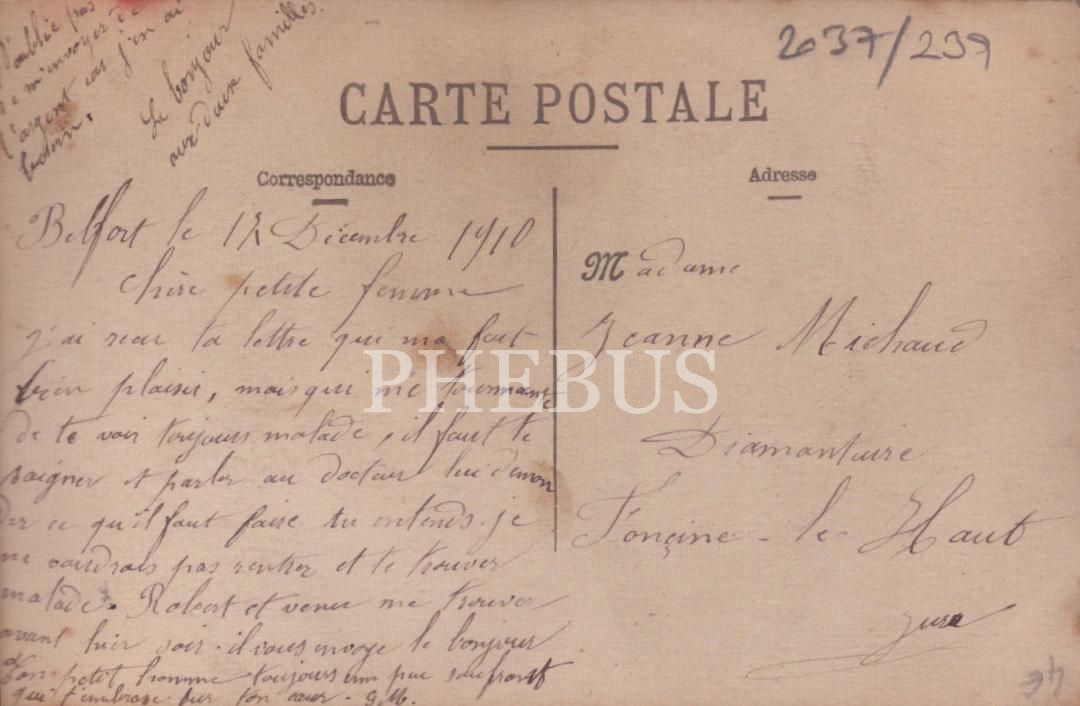 N'oublie pas
de m'envoyer de
l'argent car j'en ai
besoin.
Le bonjour
aux deux familles.
2037/239
CARTE POSTALE
Correspondance
Adresse
Belfort le 12 Décembre 1910
Chère petite femme
j'ai reçu ta lettre qui ma fait
bien plaisir, mais qui me tourmante
de te voir toujours malade, il faut te
soigner et parler au docteur lui deman
der ce qu'il faut faire tu entends. je
ne voudrais pas rentrer et te trouver
malade. Robert et venu me trouver
avant hier soir. il vous envoye le bonjour
Ton petit homme toujours un peu soufrant
qui t'embrasse sur ton cœur. G.M.
Madame
Jeanne Michaud
Diamantaire
Fonçine-le-Haut
Jura
PHEBUS